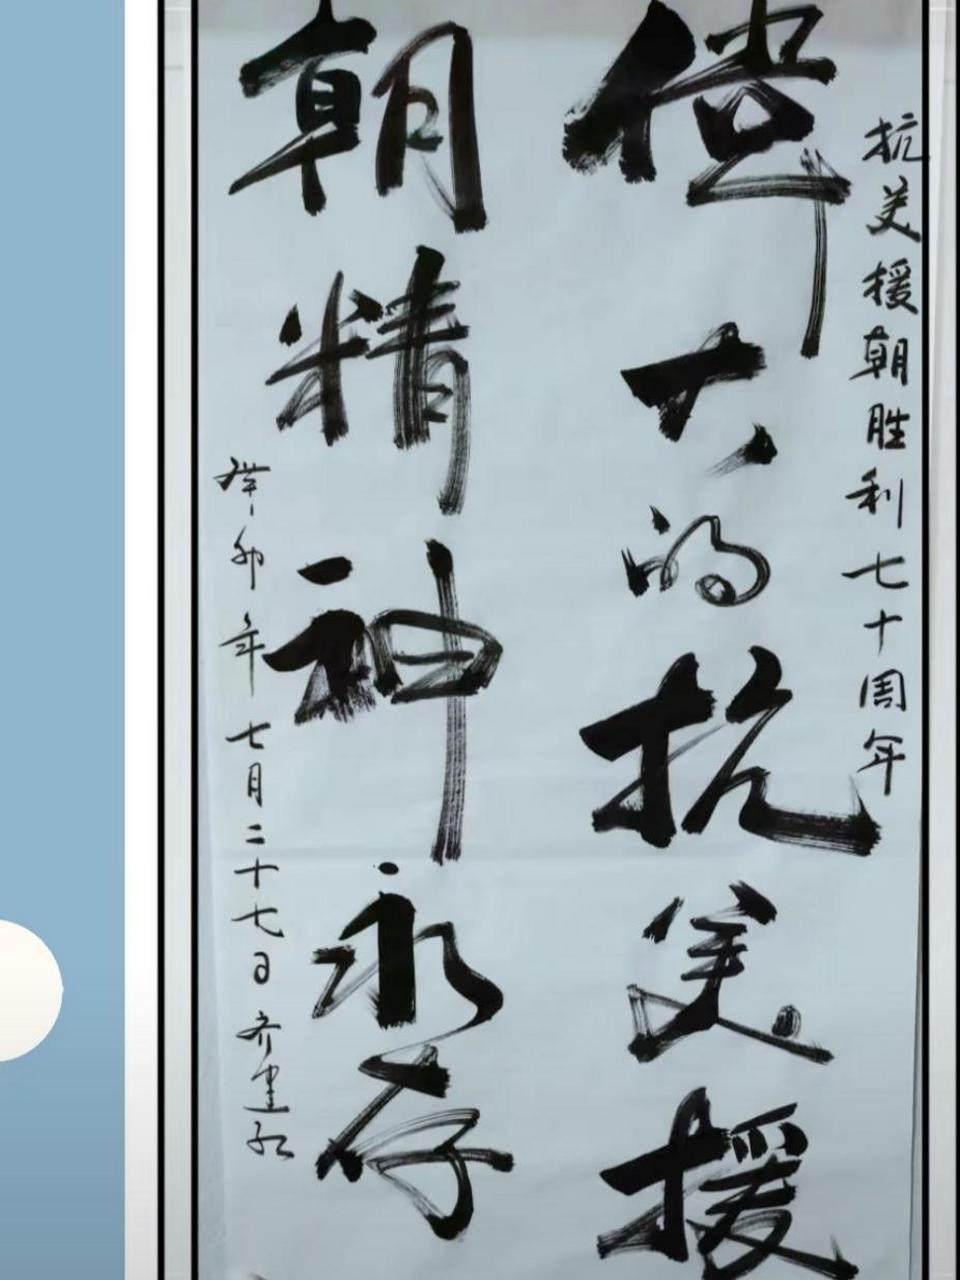 抗美援朝胜利七十周年
伟大的抗美援
朝精神永存
癸卯年七月二十七日齐建红